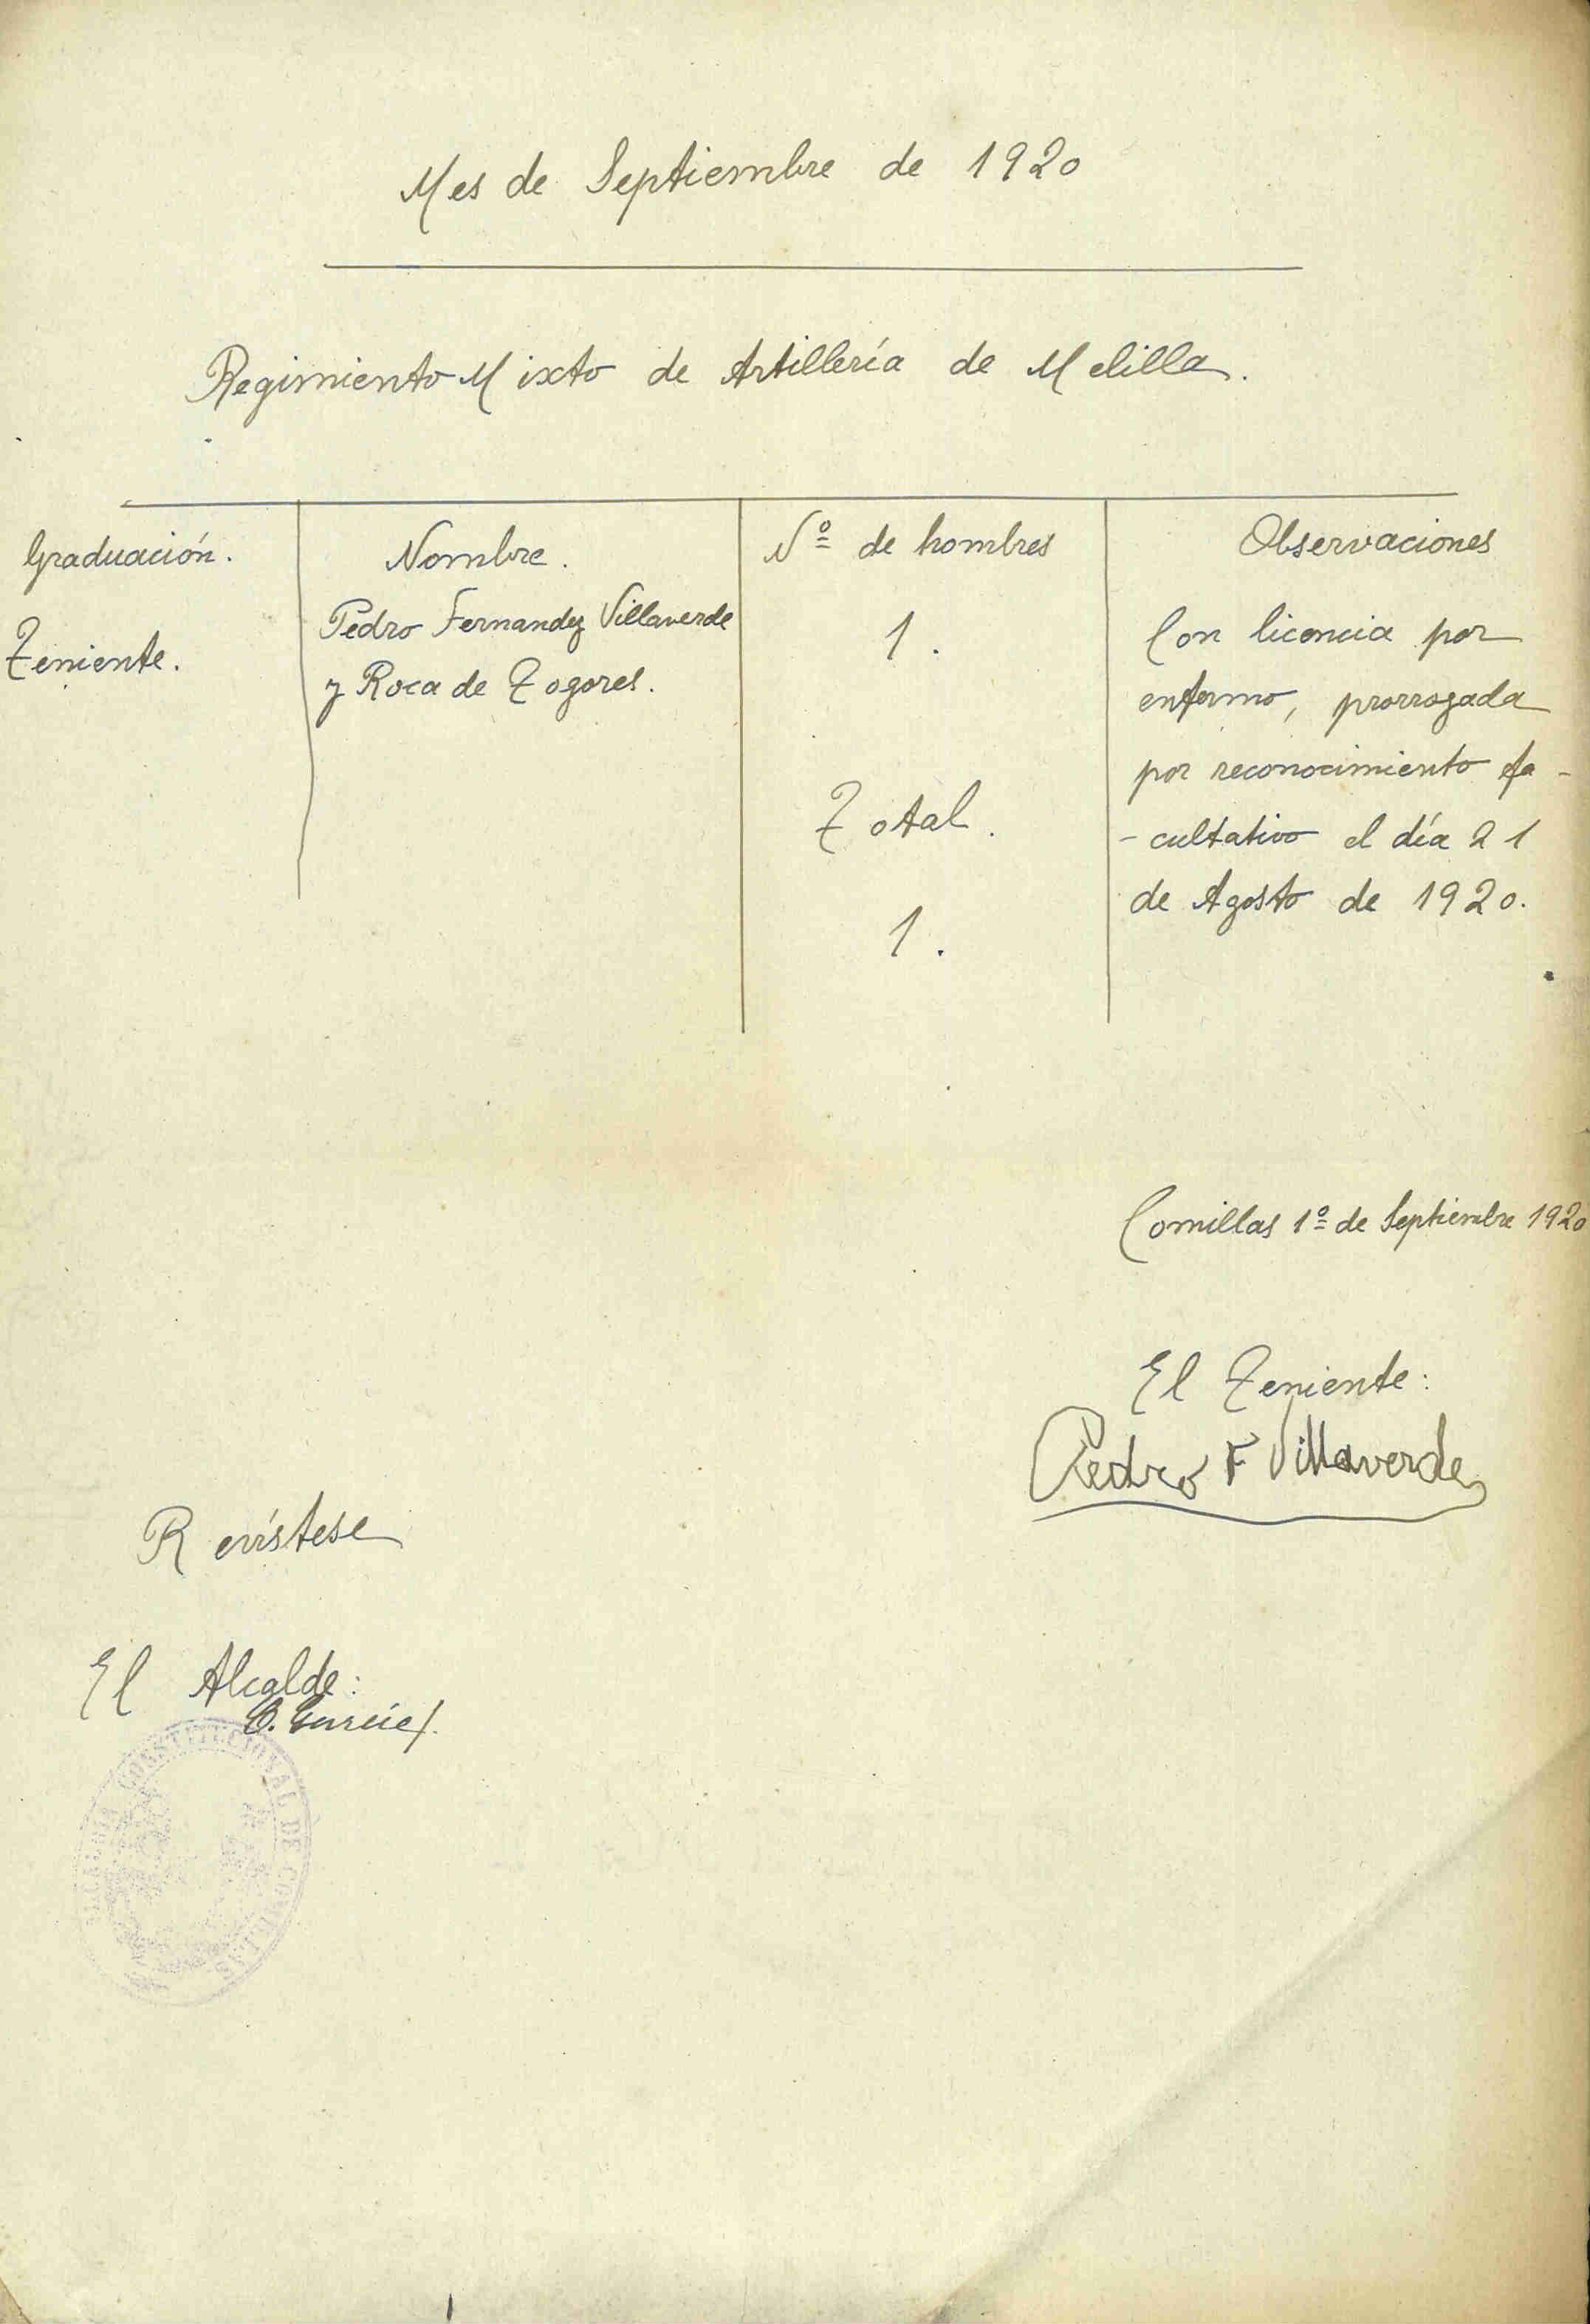 Mes de Septiembre de 1920
Regimiento Mixto de Artillería de Melilla.
Graduación.
Nombre.
Nº de hombres
Observaciones
Teniente.
Pedro Fernandez Villaverde
y Roca de Togores.
1.
Total.
1.
Con licencia por
enfermo, prorrogada
por reconocimiento fa-
-cultativo el día 21
de Agosto de 1920.
Comillas 1º de Septiembre 1920
El Teniente:
Pedro F Villaverde
Revístese
El Alcalde:
CONSTITUCIONAL DE COMILLAS